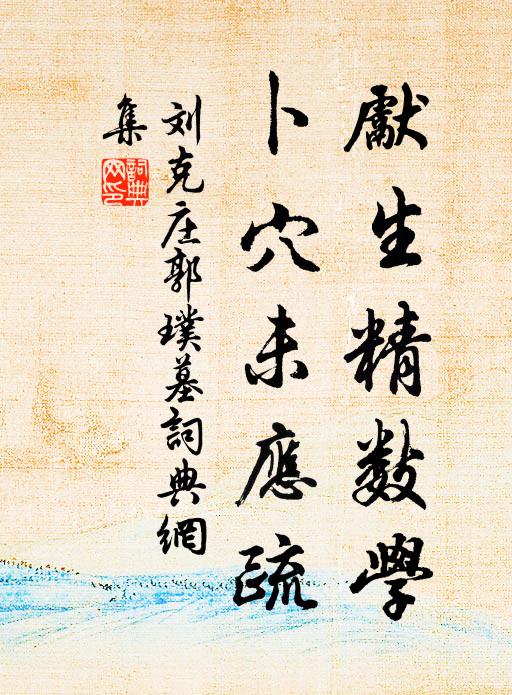 獻生精數學
卜穴未應疏
刘克庄郭璞墓詞典網
集
詞典网印